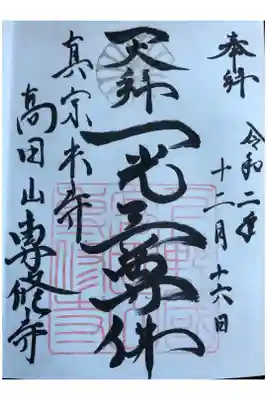 奉拝
令和二年
十二月十六日
天拝
一光三尊佛
真宗本寺
高田山専修寺